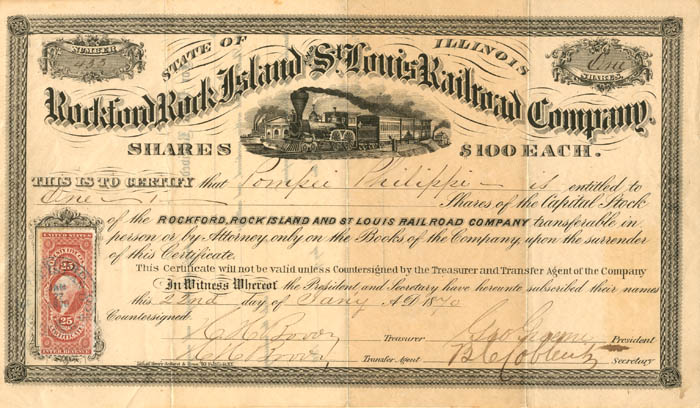 NUMBER
STATE OF ILLINOIS
One
SHARES
Rockford Rock Island and St. Louis Railroad Company.
SHARES $100 EACH.
THIS IS TO CERTIFY that Pompei Philippi is entitled to
One Shares of the Capital Stock
of the ROCKFORD, ROCK ISLAND AND ST LOUIS RAILROAD COMPANY transferable in
person or by Attorney, only on the Books of the Company, upon the surrender
of this Certificate.
This Certificate will not be valid unless Countersigned by the Treasurer and Transfer Agent of the Company
In Witness Whereof the President and Secretary have hereunto subscribed their names
this 22nd day of Jany A.D. 1870
Countersigned:
Treasurer President
Transfer Agent Secretary
UNITED STATES
25 25
CERTIFICATE
INTER. REVENUE